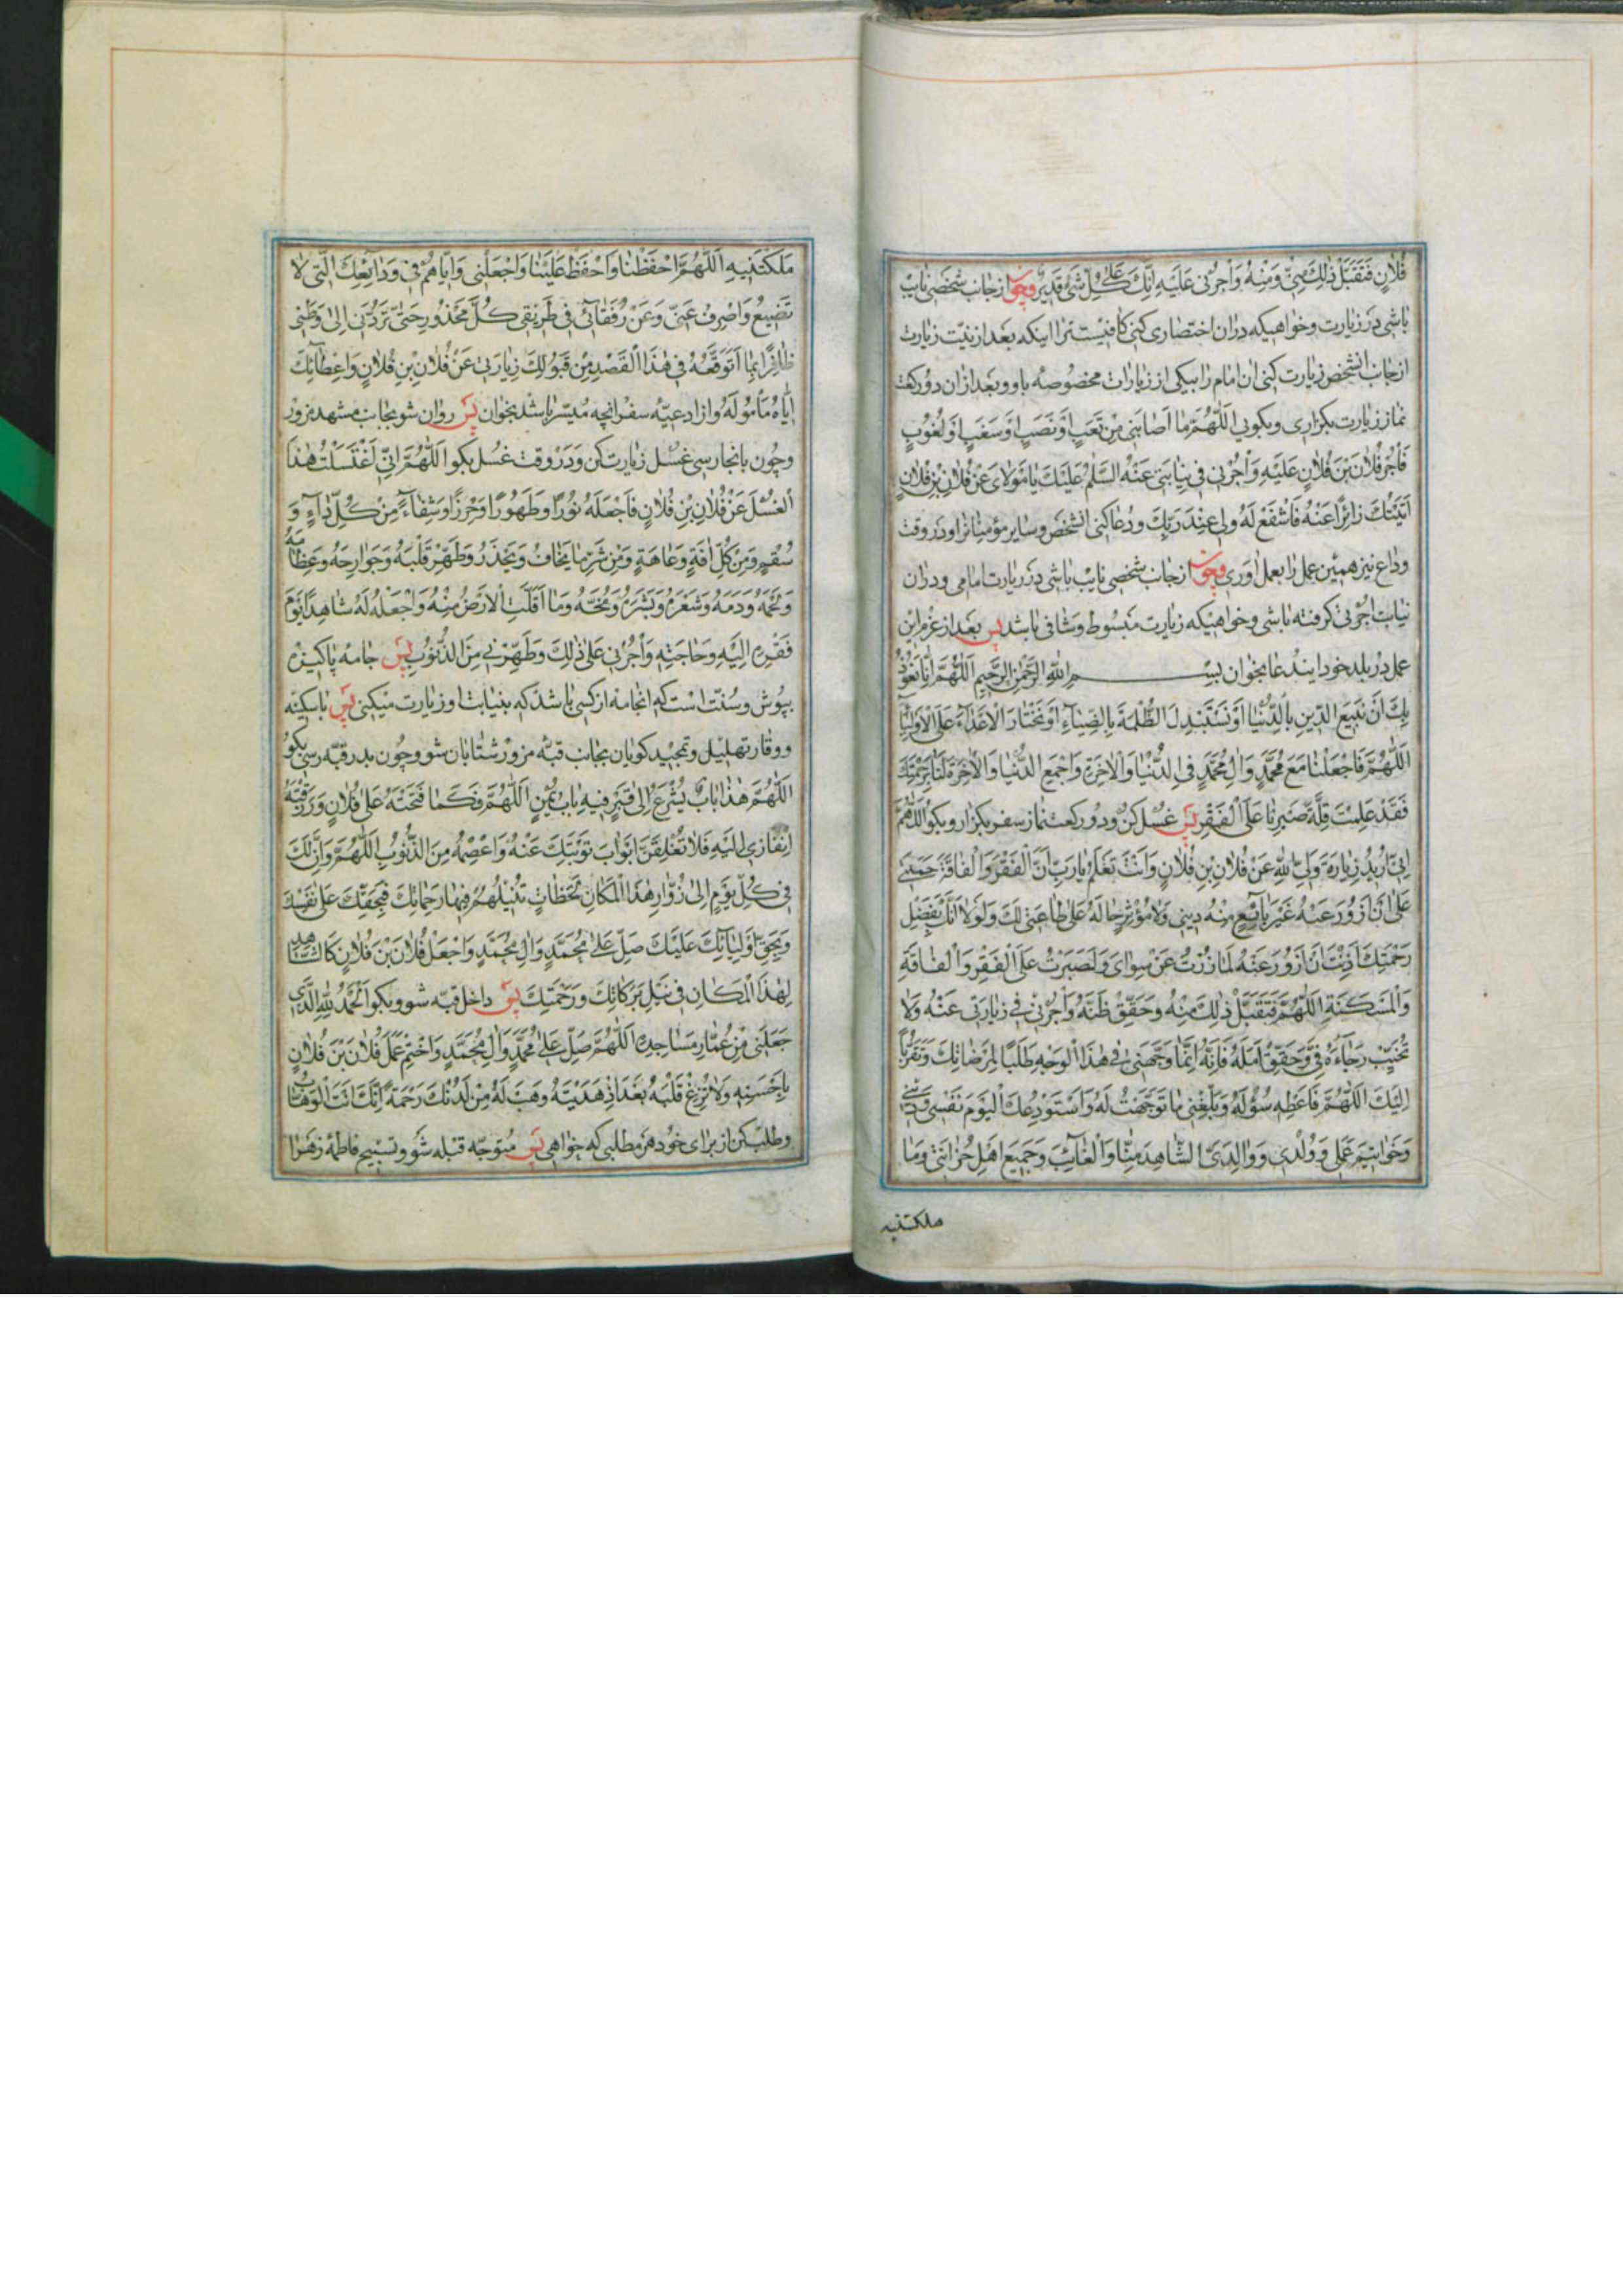 فُلانٍ فَتَقَبَّلْ ذٰلِكَ مِنّی وَمِنْهُ وَاْجُرْنی عَلَيْهِ اِنَّكَ عَلىٰ كُلِّ شَیْءٍ قَديرٌ وچون ازجانب شخصی نایب
باشی در زیارت وخواهیکه دران اختصاری کنی کافیست ترا اینکه بعد از نیّت زیارت
ازجانب انشخص زیارت کنی ان امام را بیکی از زیارات مخصوصهٔ باو وبعد ازان دو رکعت
نماز زیارت بکزاری وبکویی اَللّٰهُمَّ ما اَصابَنی مِنْ تَعَبٍ اَوْ نَصَبٍ اَوْ سَغَبٍ اَوْ لُغُوبٍ
فَاْجُرْ فُلانَ بْنَ فُلانٍ عَلَيْهِ وَاْجُرْنی فی نِيابَتی عَنْهُ اَلسَّلٰمُ عَلَيْكَ يا مَوْلایَ عَنْ فُلانِ بْنِ فُلانٍ
اَتَيْتُكَ زائِرًا عَنْهُ فَاشْفَعْ لَهُ وَلی عِنْدَ رَبِّكَ ودُعا کنی انشخص وسایر مؤمنانرا ودر وقت
وداع نیز همین عمل را بعمل اوری وچون ازجانب شخصی نایب باشی در زیارت امامی ودران
نیابت اجرتی کرفته باشی وخواهیکه زیارت مبسوط وشافی باشد پس بعد از عزم این
عمل در بلد خود ایندعا بخوان بِسْمِ اللهِ الرَّحْمٰنِ الرَّحيمِ اَللّٰهُمَّ اِنّا نَعُوذُ
بِكَ اَنْ نَبيعَ الدّينَ بِالدُّنْيا اَوْ نَسْتَبْدِلَ الظُّلْمَةَ بِالضِّياءِ اَوْ نَخْتارَ الْاَعْداءَ عَلَى الْاَوْلِياءِ
اَللّٰهُمَّ فَاجْعَلْنا مَعَ مُحَمَّدٍ وَالِ مُحَمَّدٍ فِی الدُّنْيا وَالْاٰخِرَةِ وَاجْمَعِ الدُّنْيا وَالْاٰخِرَةَ لَنا بِرَحْمَتِكَ
فَقَدْ عَلِمْتَ قِلَّةَ صَبْرِنا عَلَى الْفَقْرِ پس غسل کن ودو رکعت نماز سفر بکزار وبکو اَللّٰهُمَّ
اِنّی اُريدُ زِيارَةَ وَلِیِّ اللهِ عَنْ فُلانِ بْنِ فُلانٍ وَاَنْتَ تَعْلَمُ يا رَبِّ اَنَّ الْفَقْرَ وَالْفاقَةَ حَمَلَنی
عَلىٰ اَنْ اَزُورَ عَنْهُ غَيْرَ بايِعٍ مِنْهُ دينی وَلا مُؤْثِرٍ حالَهُ عَلىٰ طاعَتی لَكَ وَلَوْلا اَنَّكَ بِفَضْلِ
رَحْمَتِكَ اَذِنْتَ اَنْ اَزُورَ عَنْهُ لَما زُرْتُ عَنْ سِوایَ وَلَصَبَرْتُ عَلَى الْفَقْرِ وَالْفاقَةِ
وَالْمَسْكَنَةِ اَللّٰهُمَّ فَتَقَبَّلْ ذٰلِكَ مِنْهُ وَحَقِّقْ ظَنَّهُ وَاْجُرْنی فی زِيارَتی عَنْهُ وَلا
تُخَيِّبْ رَجاءَهُ فِیَّ وَحَقِّقْ اَمَلَهُ فَاِنَّهُ اِنَّما وَجَّهَنی فی هٰذَا الْوَجْهِ طَلَبًا لِمَرْضاتِكَ وَتَقَرُّبًا
اِلَيْكَ اَللّٰهُمَّ فَاَعْطِهِ سُؤْلَهُ وَبَلِّغْنی ما تَوَجَّهْتُ لَهُ وَاَسْتَوْدِعُكَ الْيَوْمَ نَفْسی وَدينی
وَخَواتيمَ عَمَلی وَوُلْدی وَوالِدَیَّ الشّاهِدَ مِنّا وَالْغائِبَ وَجَميعَ اَهْلِ حُزانَتی وَما
ملکتنیه
مَلَكْتَنيهِ اَللّٰهُمَّ احْفَظْنا وَاحْفَظْ عَلَيْنا وَاجْعَلْنی وَاِيّاهُمْ فی وَدائِعِكَ الَّتی لا
تَضيعُ وَاصْرِفْ عَنّی وَعَنْ رُفَقائی فی طَريقی كُلَّ مَحْذُورٍ حَتّىٰ تَرُدَّنی اِلىٰ وَطَنی
ظافِرًا بِما اَتَوَقَّعُهُ فی هٰذَا الْقَصْدِ مِنْ قَبُولِكَ زِيارَتی عَنْ فُلانِ بْنِ فُلانٍ وَاِعْطائِكَ
اِيّاهُ مَأمُولَهُ واز ادعیّه سفر انچه میسّر باشد بخوان پس روان شو بجانب مشهد مزور
وچون بانجا رسی غسل زیارت کن ودر وقت غسل بکو اَللّٰهُمَّ اِنّی اغْتَسَلْتُ هٰذَا
الْغُسْلَ عَنْ فُلانِ بْنِ فُلانٍ فَاجْعَلْهُ نُورًا وَطَهُورًا وَحِرْزًا وَشِفاءً مِنْ كُلِّ داءٍ وَ
سُقْمٍ وَمِنْ كُلِّ اٰفَةٍ وَعاهَةٍ وَمِنْ شَرِّ ما يَخافُ وَيَحْذَرُ وَطَهِّرْ قَلْبَهُ وَجَوارِحَهُ وَعِظامَهُ
وَلَحْمَهُ وَدَمَهُ وَشَعْرَهُ وَبَشَرَهُ وَمُخَّهُ وَما اَقَلَّتِ الْاَرْضُ مِنْهُ وَاجْعَلْهُ لَهُ شاهِدًا يَوْمَ
فَقْرِهِ اِلَيْهِ وَحاجَتِهِ وَاْجُرْنی عَلىٰ ذٰلِكَ وَطَهِّرْنی مِنَ الذُّنُوبِ پس جامه پاکیزه
بپوش وسنّت است که انجامه از کسی باشد که بنیابت او زیارت میکنی پس با سکینه
ووقار تهلیل وتمجید کویان بجانب قبّه مزور شتابان شو وچون بدر قبّه رسی بکو
اَللّٰهُمَّ هٰذا بابٌ يُشْرَعُ اِلىٰ قَبْرٍ فيهِ بابُ اَللّٰهُمَّ فَكَما فَتَحْتَهُ عَلىٰ فُلانٍ وَرَزَقْتَهُ
اِنْفاذی اِلَيْهِ فَلا تُغْلِقَنَّ اَبْوابَ تَوْبَتِكَ عَنْهُ وَاعْصِمْهُ مِنَ الذُّنُوبِ اَللّٰهُمَّ وَاِنَّ لَكَ
فی كُلِّ يَوْمٍ اِلىٰ زُوّارِ هٰذَا الْمَكانِ لَحَظاتٍ تُنيلُهُمْ فيها رَحَماتِكَ فَبِحَقِّكَ عَلىٰ نَفْسِكَ
وَبِحَقِّ اَوْلِيائِكَ عَلَيْكَ صَلِّ عَلىٰ مُحَمَّدٍ وَالِ مُحَمَّدٍ وَاجْعَلْ فُلانَ بْنَ فُلانٍ كَالشّاهِدِ
لِهٰذَا الْمَكانِ فی نَيْلِ بَرَكاتِكَ وَرَحْمَتِكَ پس داخل قبّه شو وبکو اَلْحَمْدُ لِلّٰهِ الَّذی
جَعَلَنی مِنْ عُمّارِ مَساجِدِهِ اَللّٰهُمَّ صَلِّ عَلىٰ مُحَمَّدٍ وَالِ مُحَمَّدٍ وَاخْتِمْ عَمَلَ فُلانَ بْنَ فُلانٍ
بِاَحْسَنِهِ وَلا تُزِغْ قَلْبَهُ بَعْدَ اِذْ هَدَيْتَهُ وَهَبْ لَهُ مِنْ لَدُنْكَ رَحْمَةً اِنَّكَ اَنْتَ الْوَهّابُ
وطلب کن از برای خود هر مطلبی که خواهی پس متوجّه قبله شو وتسبیح فاطمهٔ زهرا